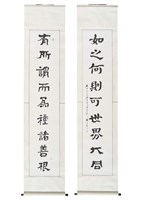 如之何則可世界大同
有所謂而為種諸善根